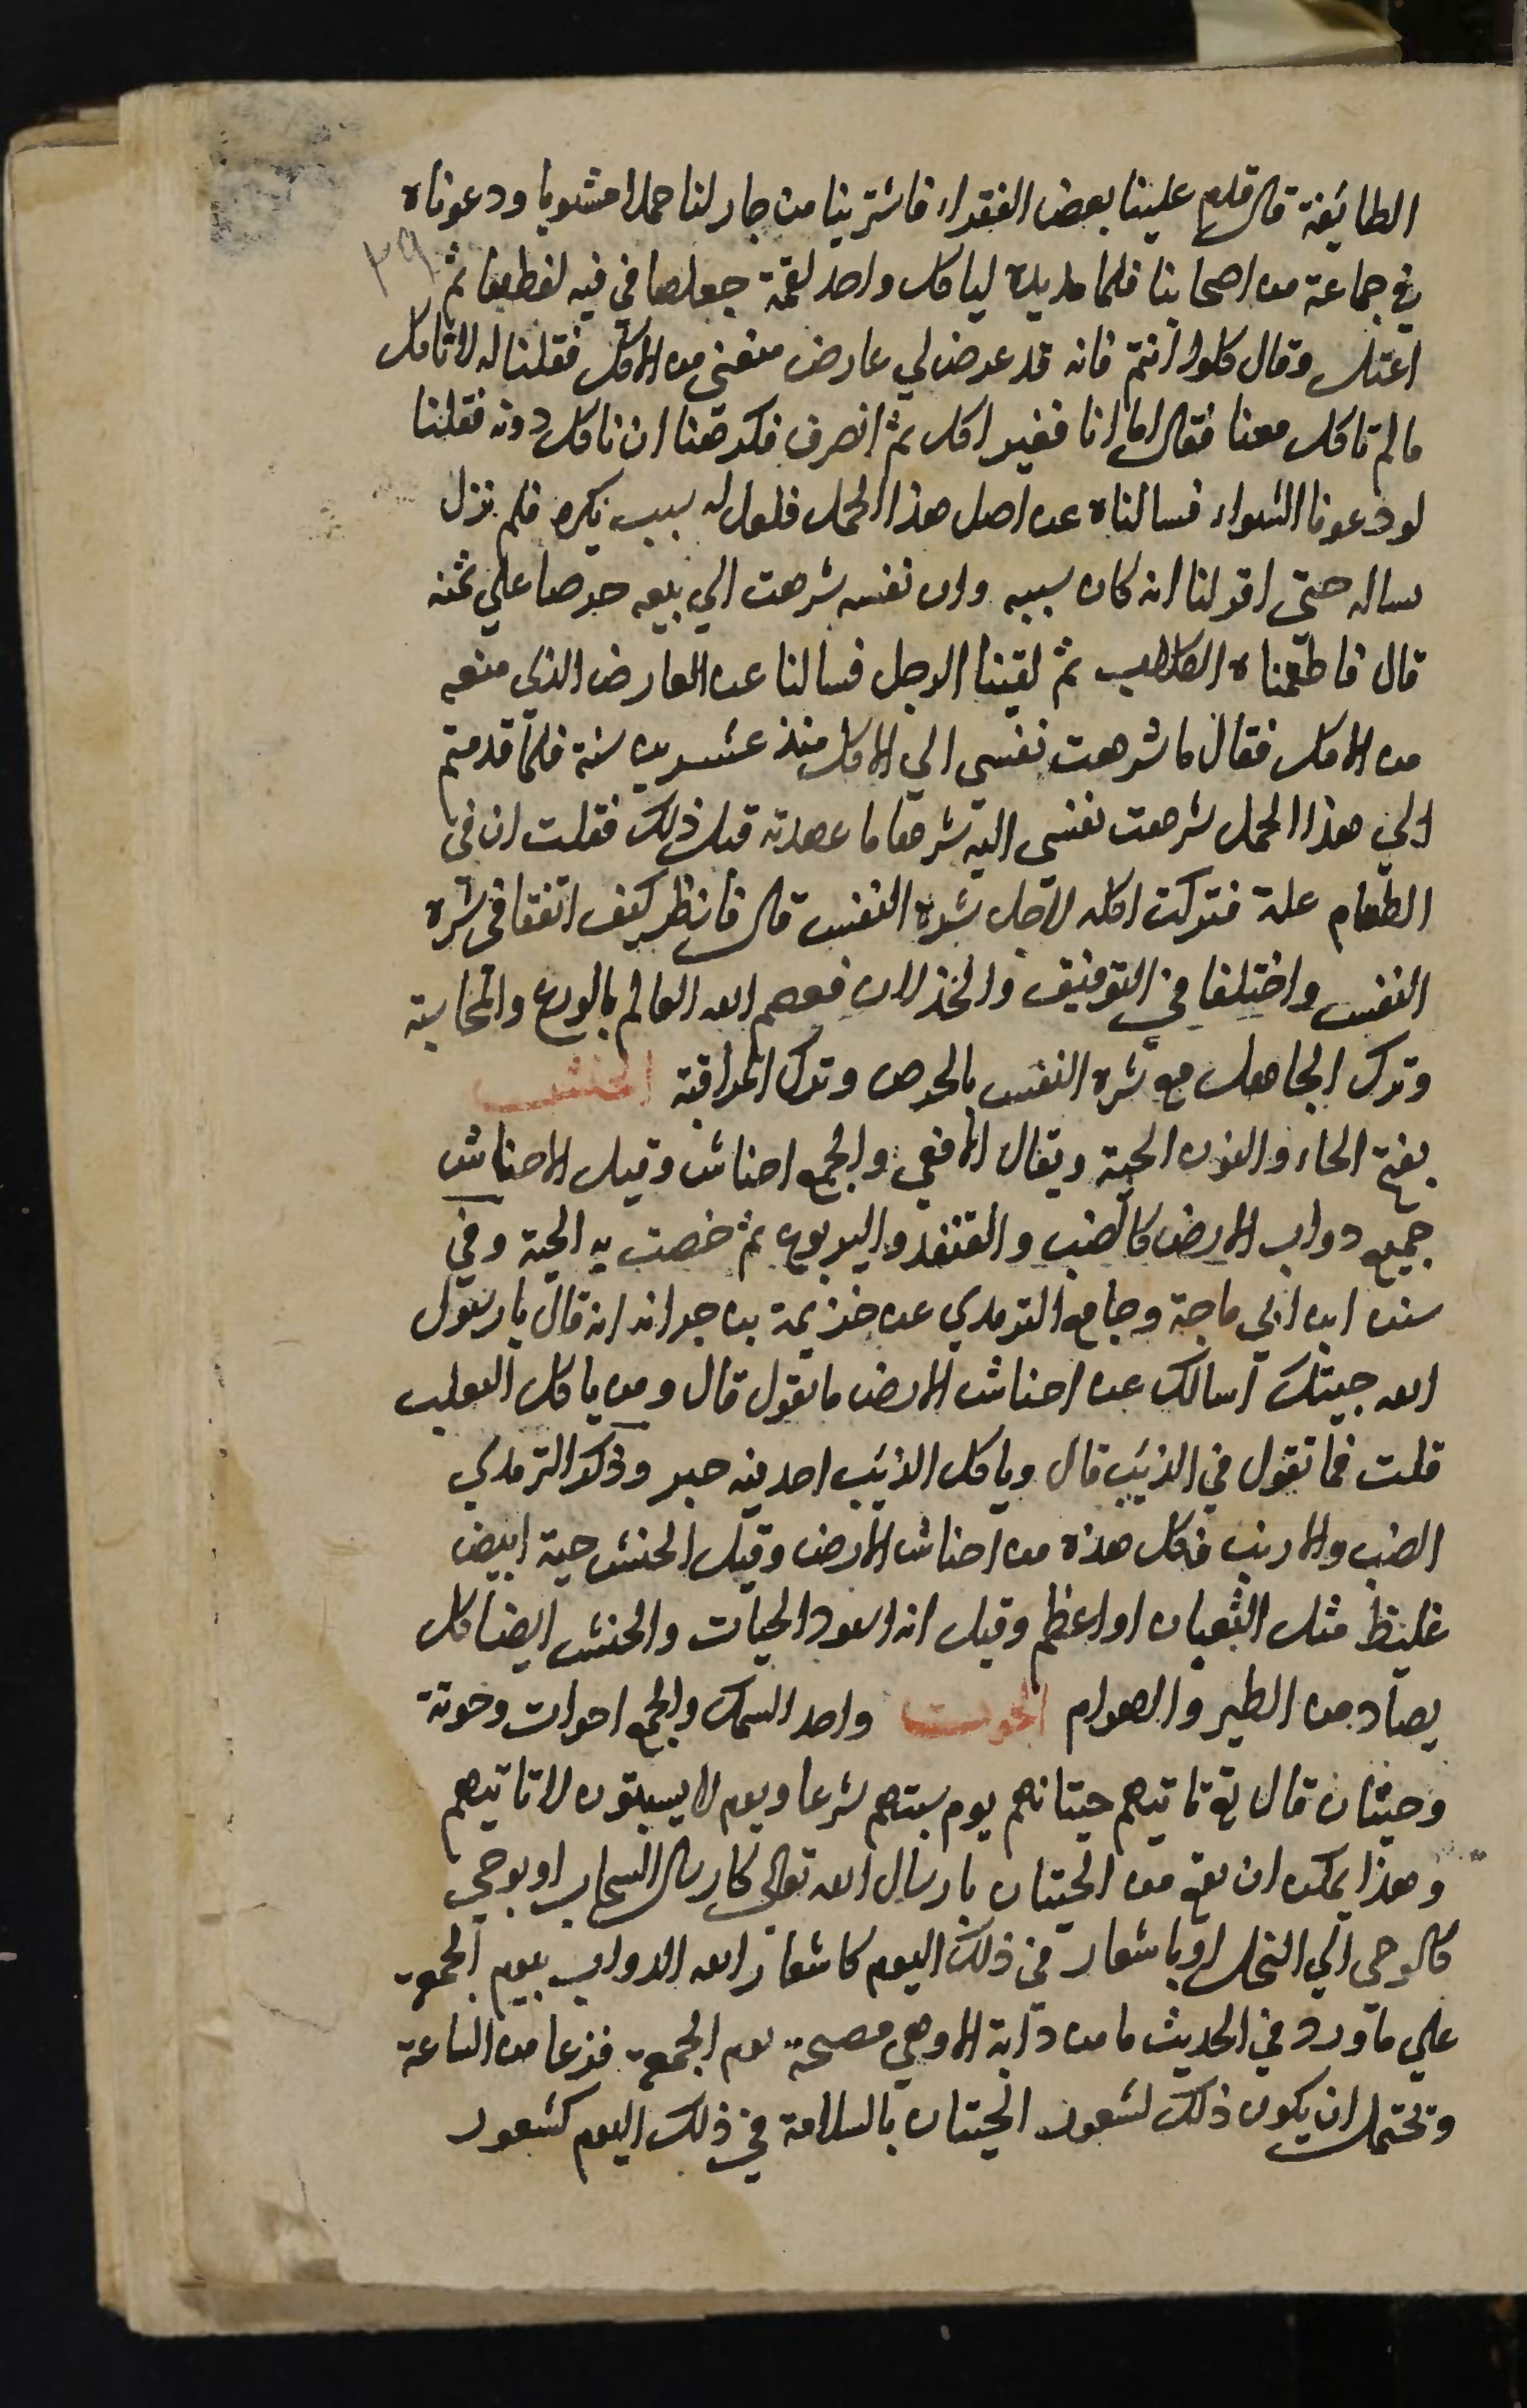 الطائفة قال قدم علينا بعض الفقراء فاشترينا من جار لنا حملا مشويا ودعوناه
٣٩
في جماعة من اصحابنا فلما مد يده لياكل واحد لقمة جعلها في فيه لفظها ثم
اعتزل وقال كلوا انتم فانه قد عرض لي عارض منعني من الاكل فقلنا له لا ناكل
ما لم تاكل معنا فقال اما انا فغير اكل ثم انصرف فكرهنا ان ناكل دونه فقلنا
لو دعونا الشواء فسالناه عن اصل هذا الحمل فلعل له سبب يكره فلم نزل
نساله حتى اقر لنا انه كان سببه وان نفسه شرهت الي بيعه حرصا علي ثمنه
قال فاطعمناه الكلاب ثم لقينا الرجل فسالنا عن العارض الذي منعه
من الاكل فقال ما شرهت نفسي الي الاكل منذ عشرين سنة فلما قدمتم
الي هذا الحمل شرهت نفسي اليه شرها ما عهدته قبل ذلك فقلت ان في
الطعام علة فتركت اكله لاجل شره النفس قال فانظر كيف اتفقا في شره
النفس واختلفا في التوفيق والخذلان فعصم الله العالم بالورع والمحاسبة
وترك الجاهل مع شره النفس بالحرص وترك المراقبة الحنش
بفتح الحاء والنون الحية ويقال الافعي والجمع احناش وقيل الاحناش
جميع دواب الارض كالضب والقنفد واليربوع ثم خصت به الحية وفي
سنن ابن ابي ماجة وجامع الترمدي عن خزيمة بن جر انه انه قال يا رسول
الله جيتك اسالك عن احناش الارض ما تقول قال ومن ياكل الثعلب
قلت فما تقول في الذئيب قال وياكل الذئيب احد فيه خير وذكر الترمدي
الضب والارنب فكل هذه من احناش الارض وقيل الحنش حية ابيض
غليظ مثل الثعبان او اعظم وقيل انه اسود الحيات والحنش ايضا كل
يصاد من الطير والهوام الحوت واحد السمك والجمع احوات وحوتة
وحيتان قال تع تاتيهم حيتانهم يوم سبتهم شرعا ويوم لا يسبتون لا تاتيهم
وهذا يمكن ان يقع من الحيتان بارسال الله تعالى كارسال السحاب او بوحي
كالوحي الي النحل او باشعار في ذلك اليوم كاشعار الله الدواب بيوم الجمعة
علي ما ورد في الحديث ما من دابة الا وهي مصيخة يوم الجمعة فزعا من الساعة
ويحتمل ان يكون ذلك لشعور الحيتان بالسلامة في ذلك اليوم كشعور